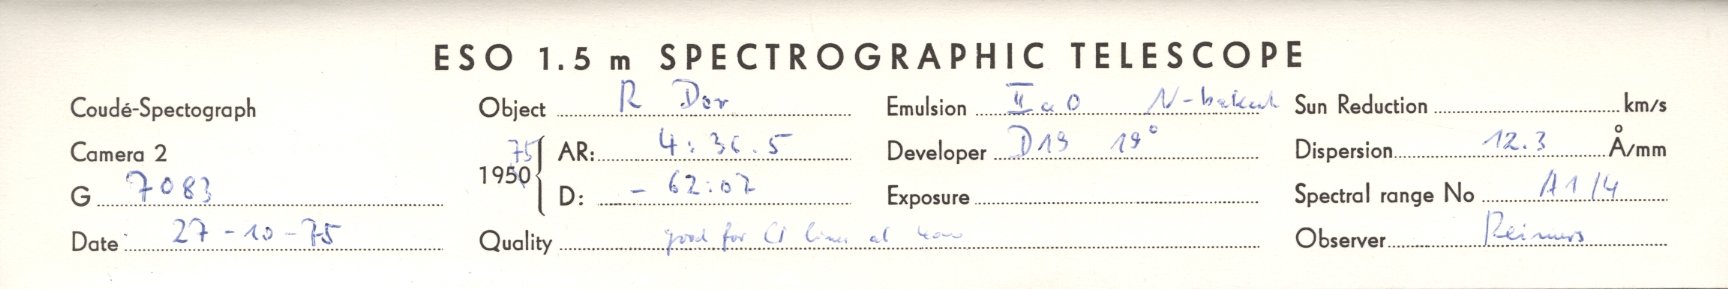 ESO 1.5 m SPECTROGRAPHIC TELESCOPE
Coudé-Spectograph Object R Dor Emulsion IIaO N-baked Sun Reduction km/s
Camera 2 1950 75 AR: 4:36.5 Developer D19 19° Dispersion 12.3 Å/mm
G 7083 D: - 62:07 Exposure Spectral range No A1/4
Date 27-10-75 Quality good for lines at Observer Reimers